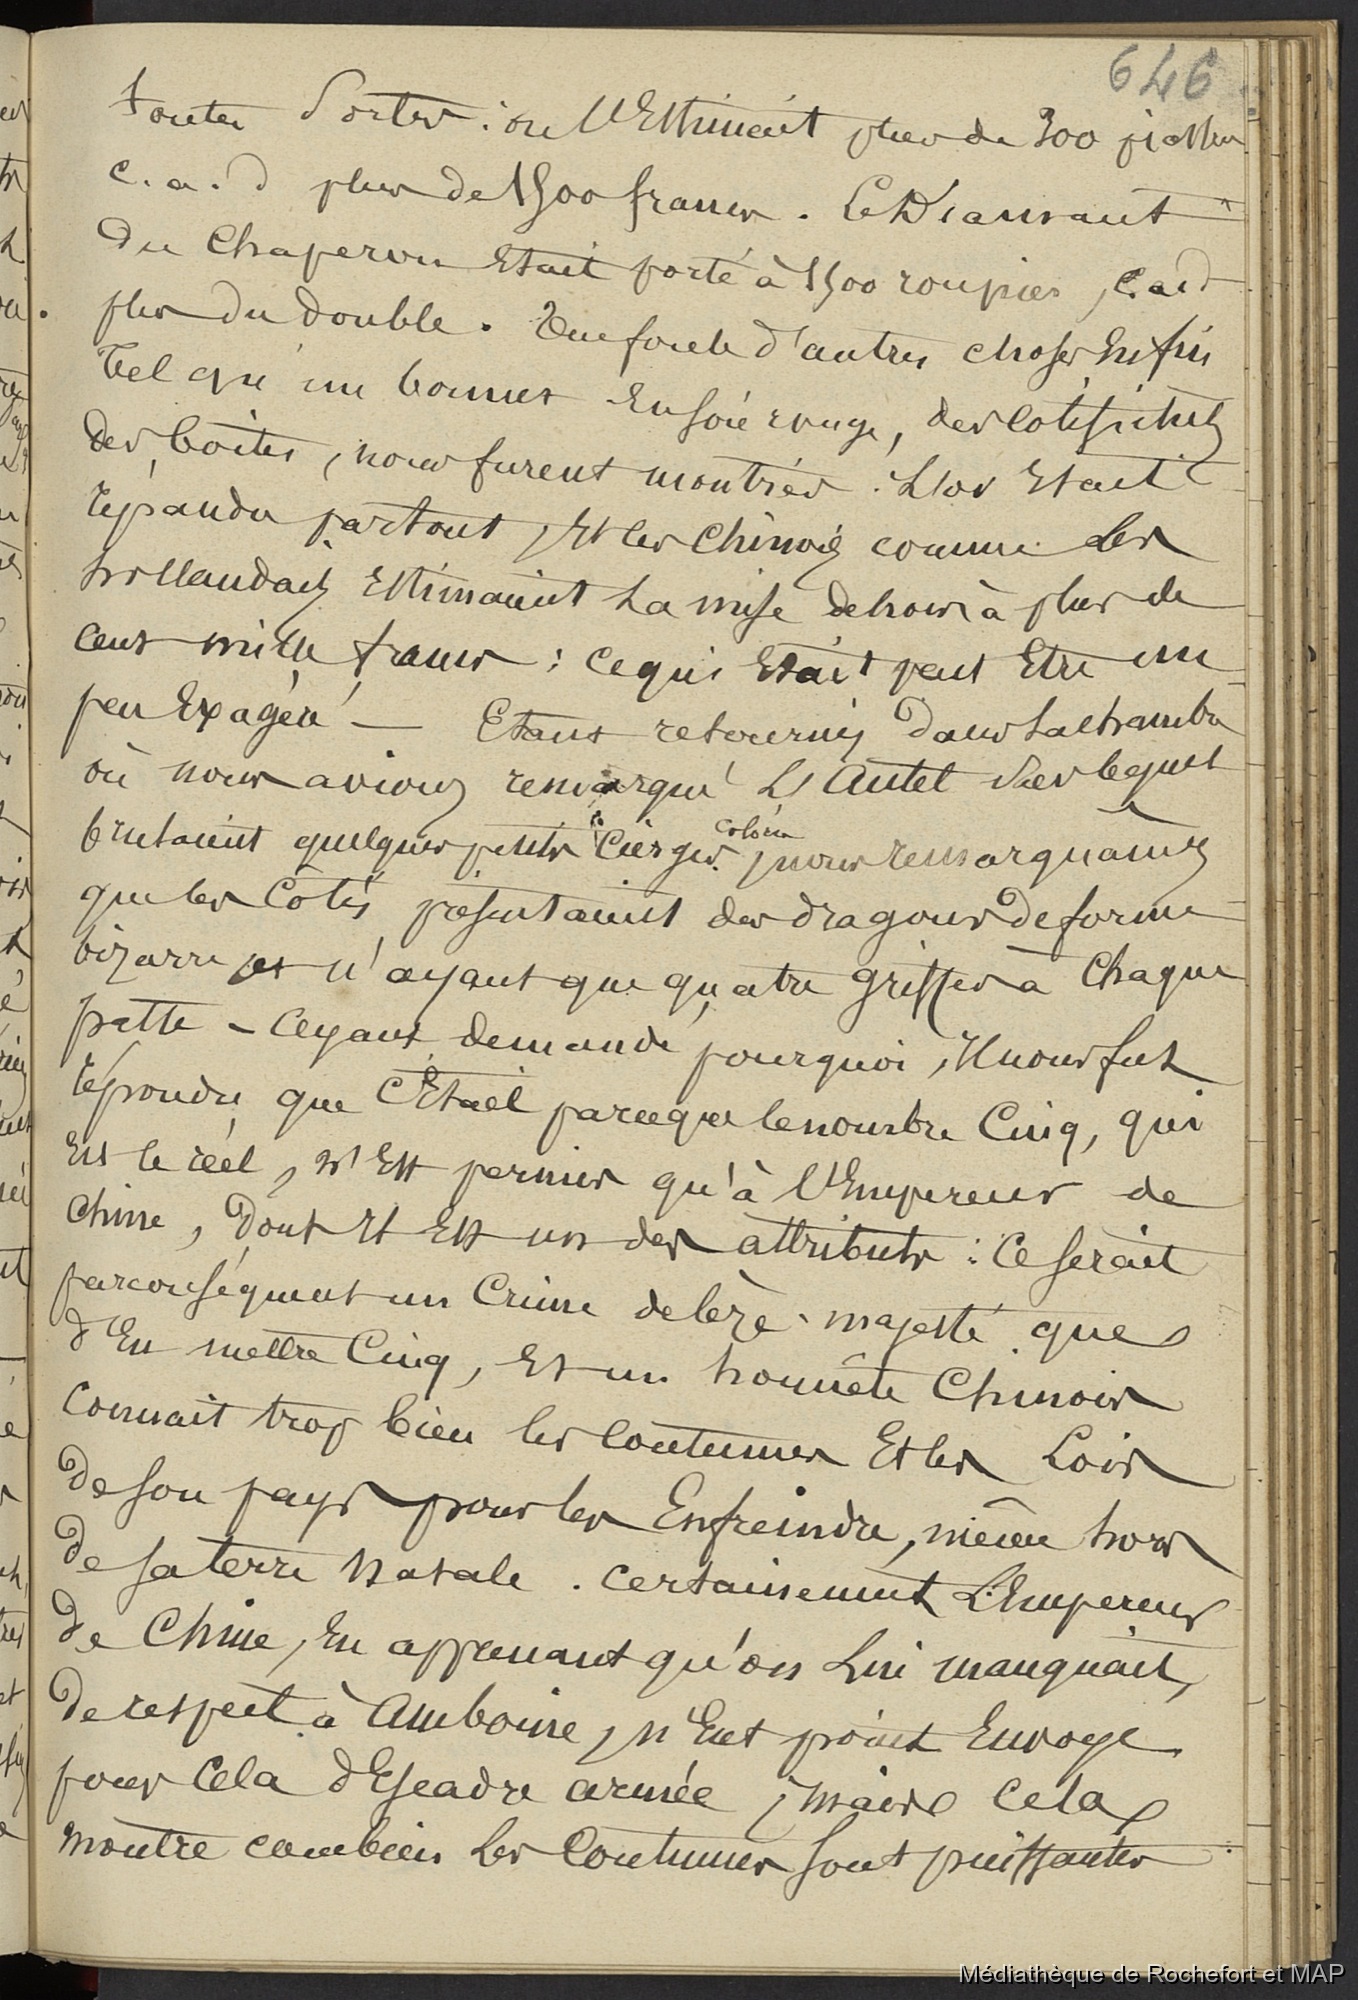 646
toutes sortes : on l'Estimait plus de 300 piastres
c. a. d plus de 1500 francs. Le Diamant
du Chaperon Etait porté à 1500 roupies, c.a.d
plus du double. Une foule d'autres choses Enfin
tel qu'un bonnet En soie rouge, des colifichets
des boites, nous furent montrés. L'or Etait
répandu partout, Et les Chinois comme les
hollandais Estimaient La mise dehors à plus de
cent mille francs : ce qui Etait peut Etre un
peu Exagéré — Etant retournés dans la chambre
où nous avions remarqué L'Autel sur lequel
brulaient quelques petits Cierges coloriés, nous remarquâmes
que les Côtés présentaient des dragons de forme
bizarre et n'ayant que quatre griffes à Chaque
patte - Ayant demandé pourquoi, Il nous fut
répondu que C'Etait parceque le nombre Cinq, qui
Est le réél, n'Est permis qu'à l'Empereur de
Chine, dont Il Est un des attributs : Ce serait
par conséquent un Crime de lèze-majesté que
d'En mettre Cinq, Et un honnête Chinois
Connait trop bien les Coutumes Et les Lois
de son pays pour les Enfreindre, même hors
de sa terre Natale. Certainement L'Empereur
de Chine, En apprenant qu'on Lui manquait,
de respect à Amboine, n'Eut point Envoyé
pour Cela d'Escadre armée, mais Cela
montre combien Les Coutumes sont puissantes
Médiathèque de Rochefort et MAP